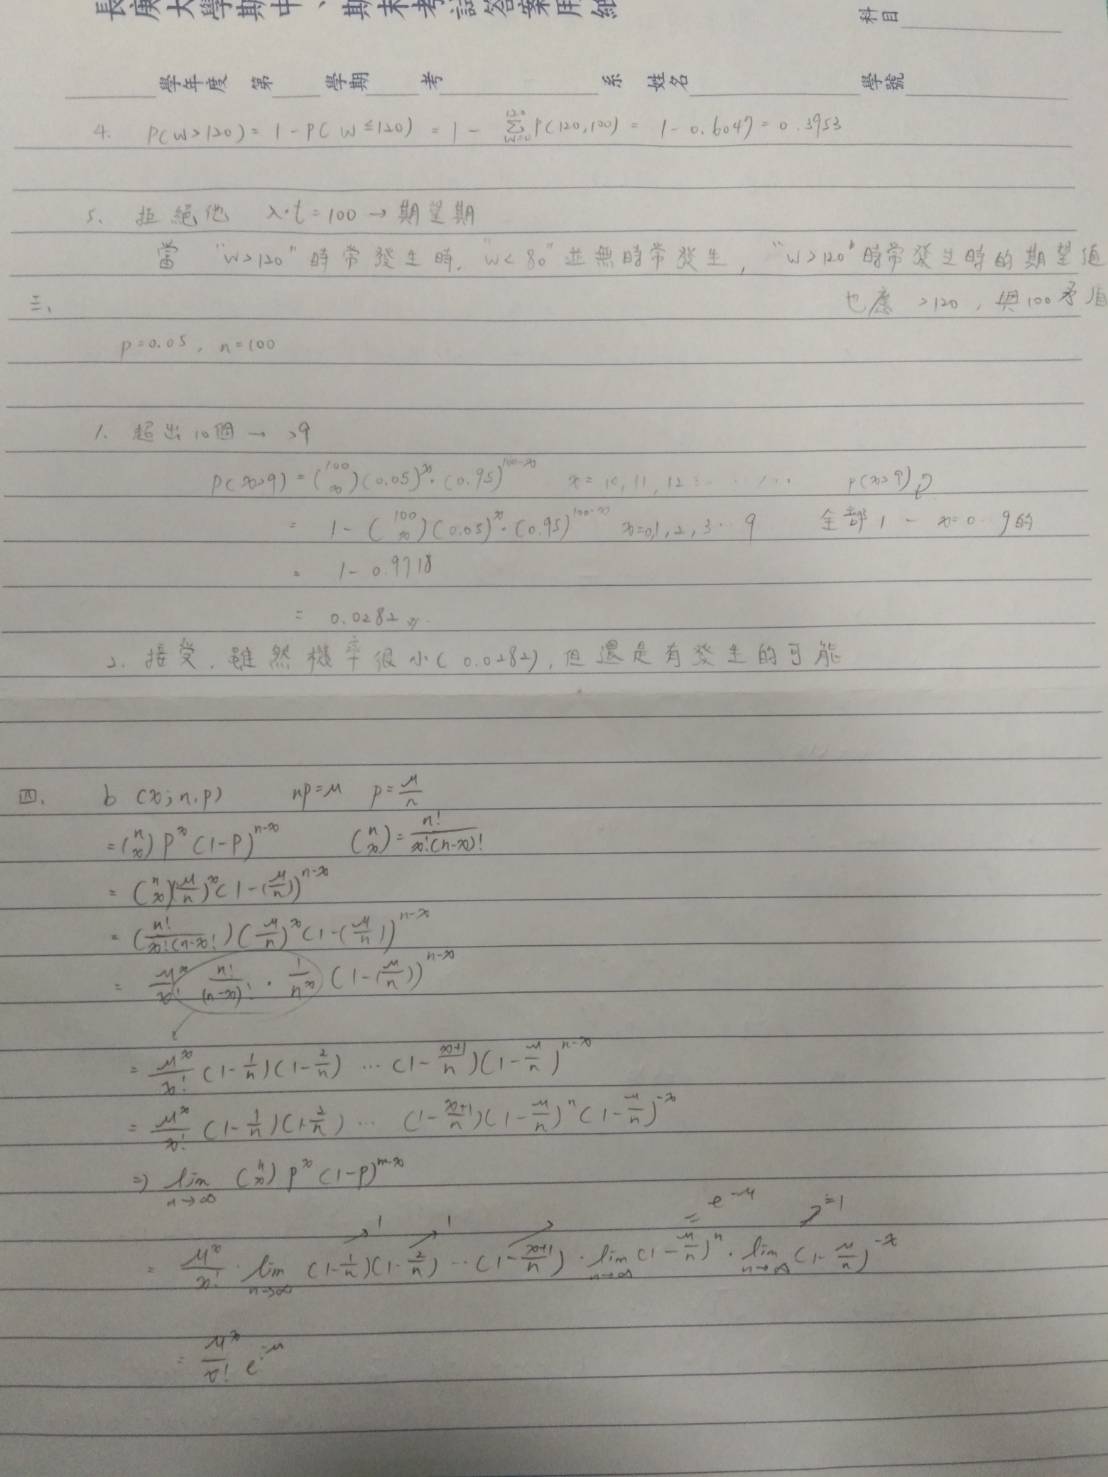 長庚大學期中、期末考試答案用紙
科目
學年度 第 學期 考 系 姓名 學號
4. P(W>120) = 1 - P(W≤120) = 1 - \sum_{w=0}^{120} P(120,100) = 1 - 0.6047 = 0.3953
5. 拒絕他 λ·t = 100 → 期望期
當 "W>120" 時常發生時, "W<80" 並無時常發生, "W>120" 時常發生時的期望值
也應 >120, 與100矛盾
三、
p=0.05, n=100
1. 超出10個 → >9
P(x>9) = \binom{100}{x}(0.05)^x·(0.95)^{100-x} x = 10, 11, 12 ...... P(x>9)
= 1 - \binom{100}{x}(0.05)^x·(0.95)^{100-x} x=0,1,2,3··9 全部1 - x=0··9的
= 1 - 0.9718
= 0.0282
2. 接受, 雖然機率很小(0.0282), 但還是有發生的可能
四. b(x;n,p) np=μ p=\frac{μ}{n}
= \binom{n}{x} p^x (1-p)^{n-x} \binom{n}{x} = \frac{n!}{x!(n-x)!}
= \binom{n}{x}(\frac{μ}{n})^x (1-(\frac{μ}{n}))^{n-x}
= (\frac{n!}{x!(n-x)!})(\frac{μ}{n})^x (1-(\frac{μ}{n}))^{n-x}
= \frac{μ^x}{x!} \frac{n!}{(n-x)!} · \frac{1}{n^x} (1-(\frac{μ}{n}))^{n-x}
= \frac{μ^x}{x!} (1-\frac{1}{n})(1-\frac{2}{n}) ··· (1-\frac{x+1}{n})(1-\frac{μ}{n})^{n-x}
= \frac{μ^x}{x!} (1-\frac{1}{n})(1-\frac{2}{n}) ··· (1-\frac{x+1}{n})(1-\frac{μ}{n})^n (1-\frac{μ}{n})^{-x}
⇒ \lim_{n→∞} \binom{n}{x} p^x (1-p)^{n-x}
1 1 = e^{-μ} =1
= \frac{μ^x}{x!} · \lim_{n→∞} (1-\frac{1}{n})(1-\frac{2}{n}) ··· (1-\frac{x+1}{n}) · \lim_{n→∞} (1-\frac{μ}{n})^n · \lim_{n→∞} (1-\frac{μ}{n})^{-x}
= \frac{μ^x}{x!} e^{-μ}